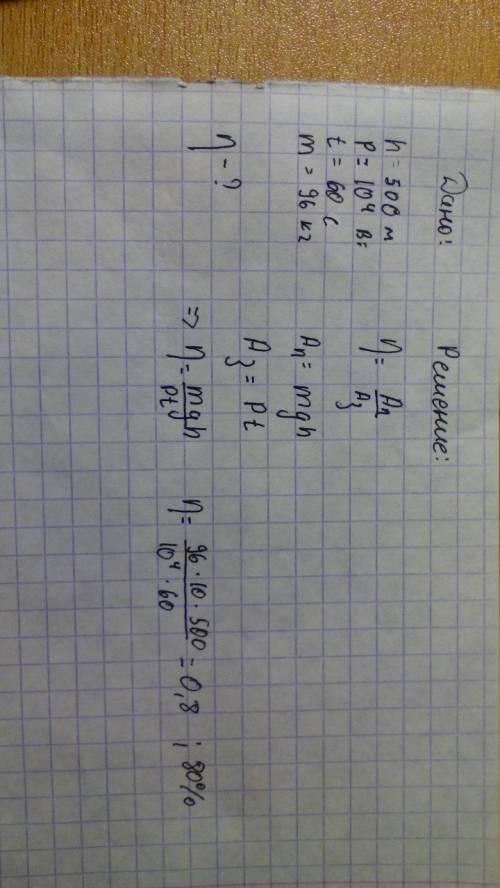 Дано:
h = 500 м
P = 10⁴ Вт
t = 60 с
m = 96 кг
η - ?
Решение:
η = Aп/Aз
Aп = mgh
Aз = Pt
=> η = mgh/Pt
η = 96 · 10 · 500/10⁴ · 60 = 0,8 ; 80%